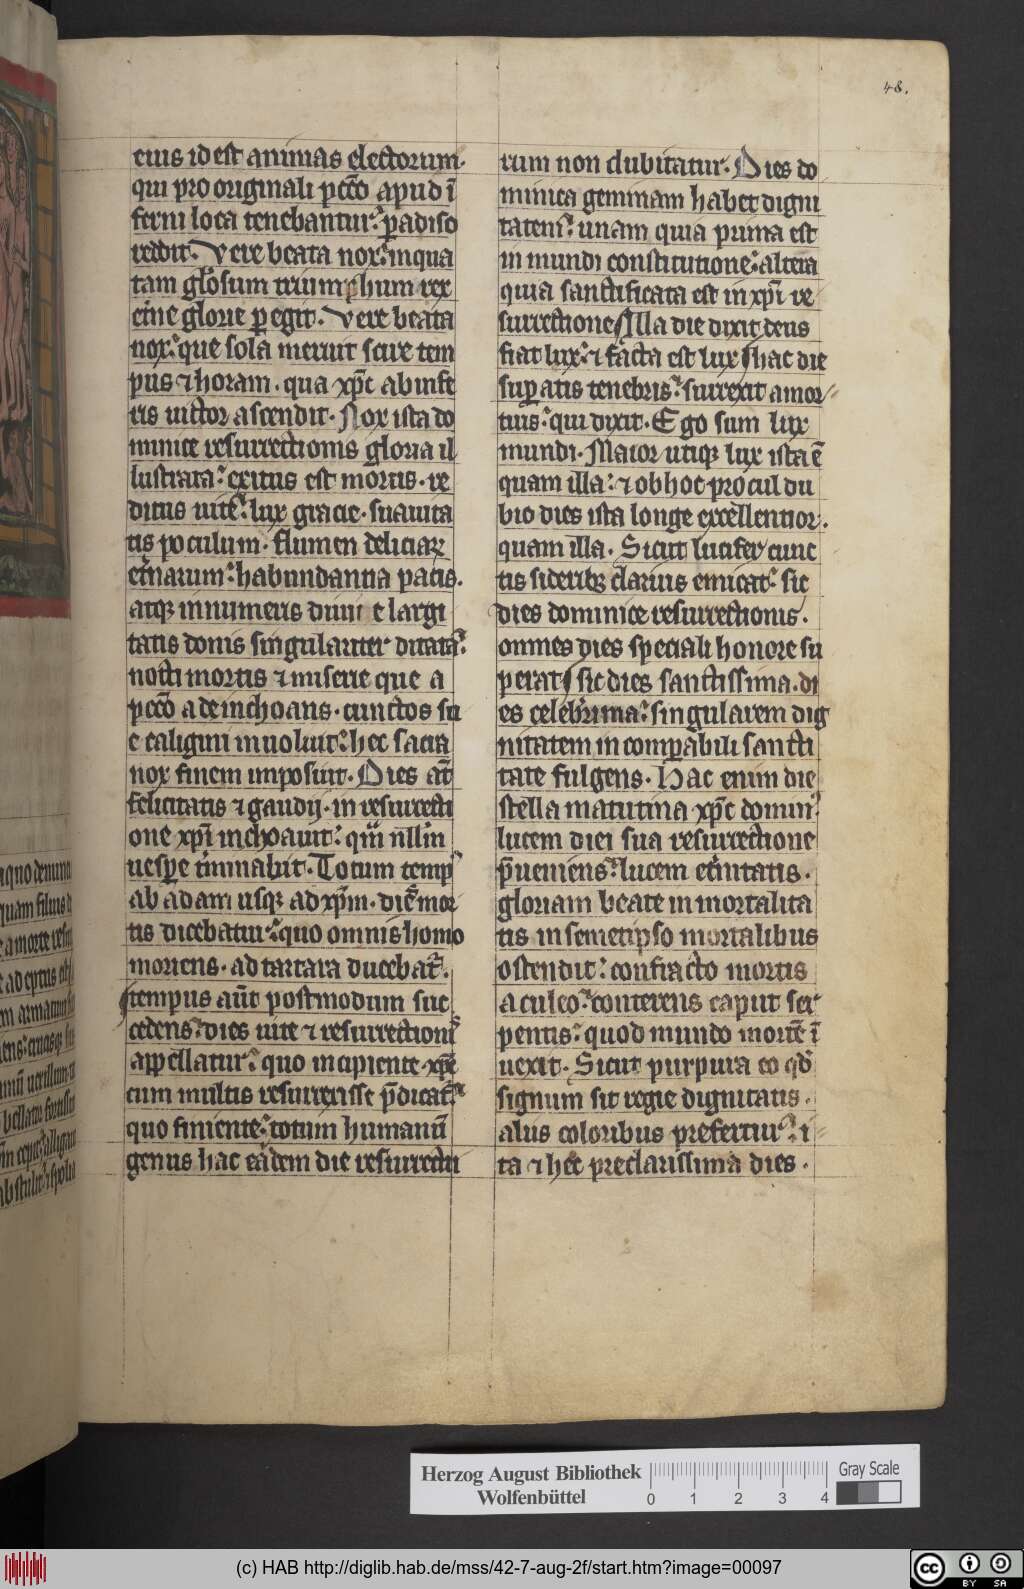 48.
eius id est animas electorum.
qui pro originali pcc̄o apud ī
ferni loca tenebantur. ꝑadiso
reddit. Vere beata nox. in qua
tam gl̓osum triumphum rex
et̓ne glorie ꝑegit. Vere beata
nox. que sola meruit scire tem
pus ⁊ horam. qua xp̄c ab infe
ris uictor ascendit. Nox ista do
minice resurrectionis gloria il
lustrata. exitus est mortis. re
ditus uite. lux gracie. suauita
tis poculum. flumen deliciaꝝ
et̓narum. habundantia pacis.
atqꝫ innumeris diuine largi
tatis donis singulariter ditata.
nocti mortis ⁊ miserie que a
pcc̄o ade inchoans. cunctos su
e caligini inuoluit. hec sacra
nox finem imposuit. Dies aūt
felicitatis ⁊ gaudij. in resurrecti
one xp̄i inchoauit. qui nullum
uesꝑe t̓minabit. Totum temp᷒
ab adam usqꝫ ad xp̄m. dies mor
tis dicebatur. quo omnis homo
moriens. ad tartara ducebat᷑.
tempus aūt postmodum suc
cedens. dies uite ⁊ resurrectionis
appellatur. quo incipiente xp̄c
cum multis resurrexisse p̄dicat᷑.
quo finiente. totum humanū
genus hac eadem die resurrectu
rum non dubitatur. Dies do
minica geminam habet digni
tatem. unam quia prima est
in mundi constitutione. altera
quia sanctificata est in xp̄i re
surrectione. Illa die dixit deus
fiat lux. ⁊ facta est lux. hac die
suꝑatis tenebris. surrexit a mor
tuis. qui dixit. Ego sum lux
mundi. Maior utiqꝫ lux ista ē
quam illa. ⁊ ob hoc procul du
bio dies ista longe excellentior.
quam illa. Sicut lucifer cunc
tis sideribꝫ clarius emicat. sic
dies dominice resurrectionis.
omnes dies speciali honore su
perat. sic dies sanctissima. di
es celeb̓rima. singularem dig
nitatem incomparabili sancti
tate fulgens. Hac enim die
stella matutina xp̄c domin᷒.
lucem diei sua resurrectione
p̄ueniens. lucem et̓nitatis.
gloriam beate inmortalita
tis in semetipso mortalibus
ostendit. confracto mortis
aculeo. conterens caput ser
pentis. quod mundo mortē ī
uexit. Sicut purpura eo qd̓
signum sit regie dignitatis.
aliis coloribus prefertur. i
ta ⁊ hec preclarissima dies.
Herzog August Bibliothek
Wolfenbüttel
0 1 2 3 4
Gray Scale
(c) HAB http://diglib.hab.de/mss/42-7-aug-2f/start.htm?image=00097
cc BY SA